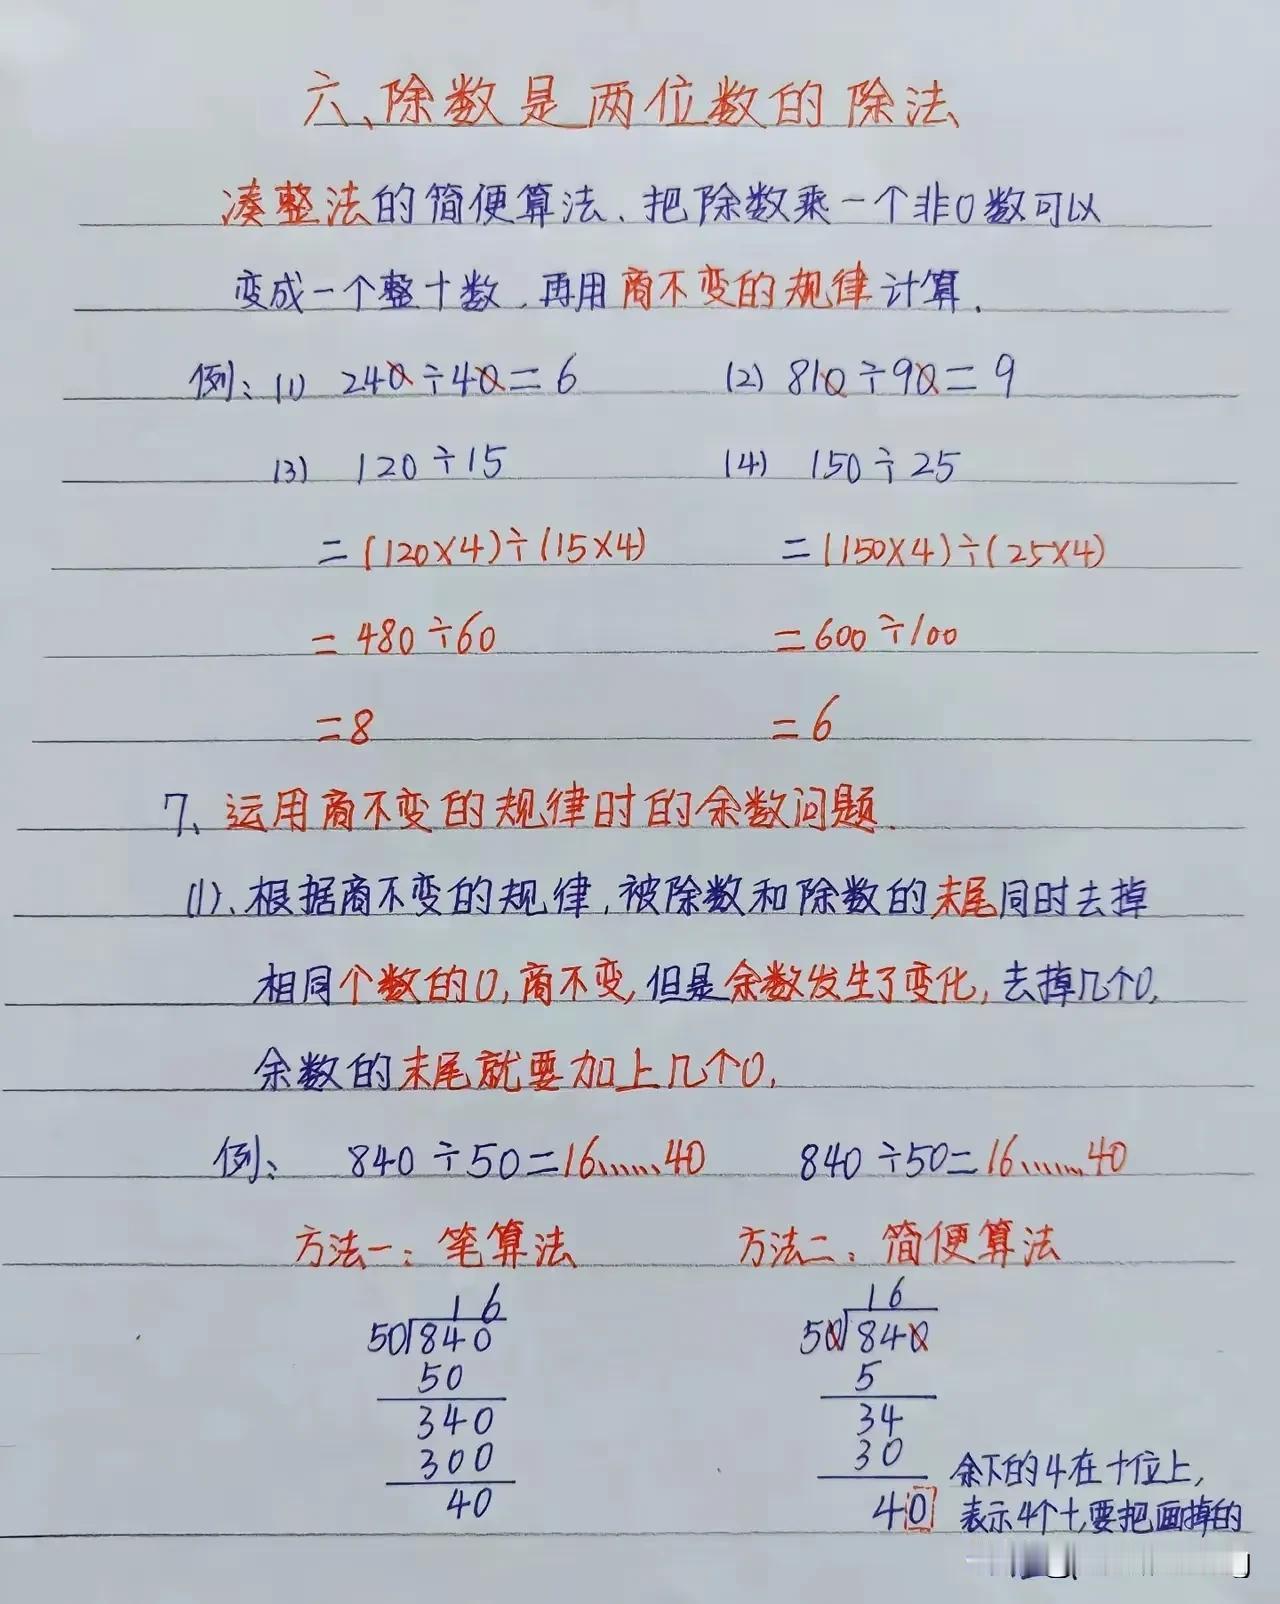 六、除数是两位数的除法
凑整法的简便算法、把除数乘一个非0数可以
变成一个整十数,再用商不变的规律计算.
例:(1) 240÷40=6 (2) 810÷90=9
(3) 120÷15 (4) 150÷25
=(120×4)÷(15×4) =(150×4)÷(25×4)
=480÷60 =600÷100
=8 =6
7、运用商不变的规律时的余数问题.
(1)、根据商不变的规律,被除数和除数的末尾同时去掉
相同个数的0,商不变,但是余数发生了变化,去掉几个0,
余数的末尾就要加上几个0.
例: 840÷50=16......40 840÷50=16......40
方法一:笔算法 方法二:简便算法
16 16
50 840 50 840
50 5
340 34
300 30 余下的4在十位上,
40 40 表示4个十,要把画掉的